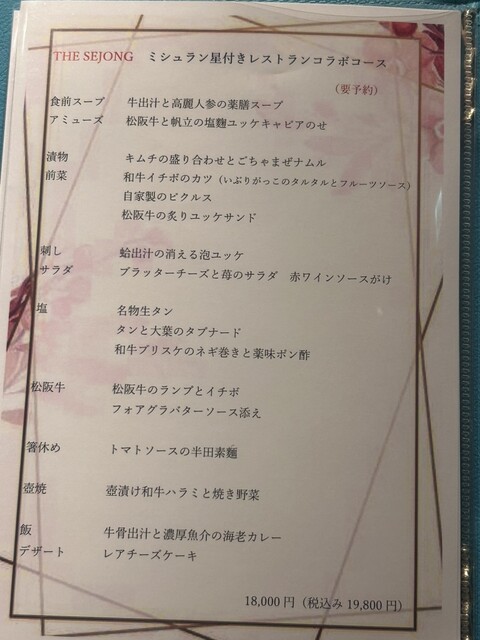 THE SEJONG ミシュラン星付きレストランコラボコース
（要予約）
食前スープ 牛出汁と高麗人参の薬膳スープ
アミューズ 松阪牛と帆立の塩麴ユッケキャビアのせ
漬物 キムチの盛り合わせとごちゃまぜナムル
前菜 和牛イチボのカツ（いぶりがっこのタルタルとフルーツソース）
自家製のピクルス
松阪牛の炙りユッケサンド
刺し 蛤出汁の消える泡ユッケ
サラダ ブラッターチーズと苺のサラダ 赤ワインソースがけ
塩 名物生タン
タンと大葉のタプナード
和牛ブリスケのネギ巻きと薬味ポン酢
松阪牛 松阪牛のランプとイチボ
フォアグラバターソース添え
箸休め トマトソースの半田素麺
壺焼 壺漬け和牛ハラミと焼き野菜
飯 牛骨出汁と濃厚魚介の海老カレー
デザート レアチーズケーキ
18,000 円（税込み 19,800 円）